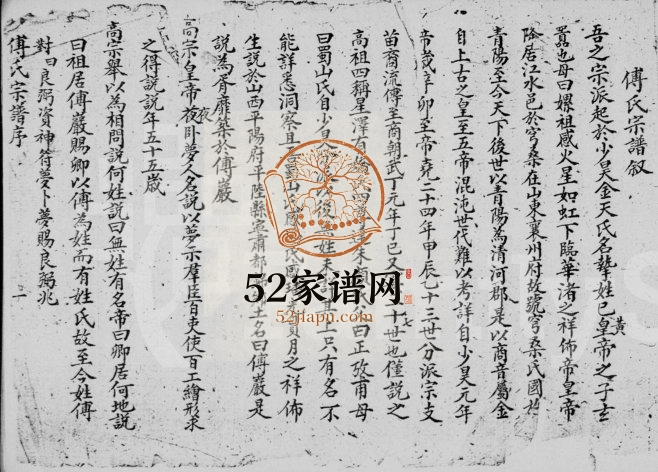 傅氏宗譜叙
吾之宗派起於少昊金天氏名摯姓已黃帝之子玄
囂也母曰嫘祖感火星如虹下臨華渚之祥佈帝皇帝
降居江水邑於窮桑在山東襄州府故號窮桑氏國於
青陽至今天下後世以青陽為清河郡是以商音屬金
自上古之皇至五帝混沌世代難以考詳自少昊元年
帝歲辛卯至帝堯二十四年甲辰乙十三世分派宗支
苗裔流傳至商朝武丁元年丁巳又 十世也僅說之
高祖四稱星澤有 曰正攷甫母
曰蜀山氏自少昊 以後 姓未 上只有名不
能詳悉洞察 月之祥佈
生說於山西平陽府平陸縣 土名曰傅巖是
說為胥靡築於傅巖
高宗皇帝夜卧夢人名說以夢示羣臣百吏使百工繪形求
之得說說年五十五歲
高宗舉以為相問說何姓說曰無姓有名帝曰卿居何地說
曰祖居傅巖賜卿以傅為姓而有姓氏故至今姓傅
對曰良弼資神符夢卜夢賜良弼兆
傅氏宗譜序
一
52家谱网
52jiapu.com